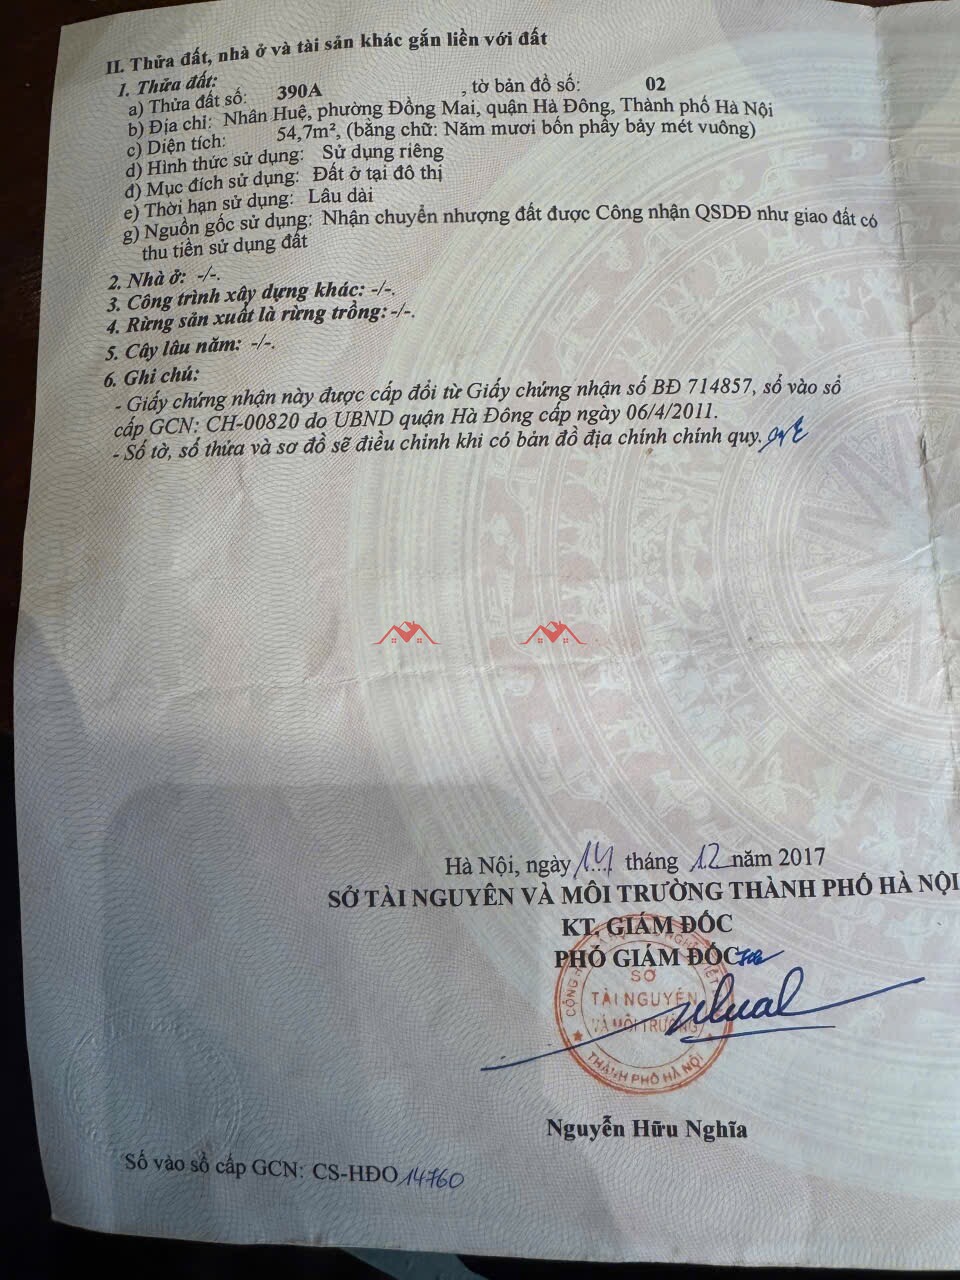 II. Thửa đất, nhà ở và tài sản khác gắn liền với đất
1. Thửa đất:
a) Thửa đất số: 390A , tờ bản đồ số: 02
b) Địa chỉ: Nhân Huệ, phường Đồng Mai, quận Hà Đông, Thành phố Hà Nội
c) Diện tích: 54,7m², (bằng chữ: Năm mươi bốn phẩy bảy mét vuông)
d) Hình thức sử dụng: Sử dụng riêng
đ) Mục đích sử dụng: Đất ở tại đô thị
e) Thời hạn sử dụng: Lâu dài
g) Nguồn gốc sử dụng: Nhận chuyển nhượng đất được Công nhận QSDĐ như giao đất có
thu tiền sử dụng đất
2. Nhà ở: -/-.
3. Công trình xây dựng khác: -/-.
4. Rừng sản xuất là rừng trồng: -/-.
5. Cây lâu năm: -/-.
6. Ghi chú:
- Giấy chứng nhận này được cấp đổi từ Giấy chứng nhận số BĐ 714857, số vào sổ
cấp GCN: CH-00820 do UBND quận Hà Đông cấp ngày 06/4/2011.
- Số tờ, số thửa và sơ đồ sẽ điều chỉnh khi có bản đồ địa chính chính quy.
Hà Nội, ngày 14 tháng 12 năm 2017
SỞ TÀI NGUYÊN VÀ MÔI TRƯỜNG THÀNH PHỐ HÀ NỘI
KT. GIÁM ĐỐC
PHÓ GIÁM ĐỐC
SỞ
TÀI NGUYÊN
VÀ MÔI TRƯỜNG
THÀNH PHỐ HÀ NỘI
Nguyễn Hữu Nghĩa
Số vào sổ cấp GCN: CS-HĐO 14760